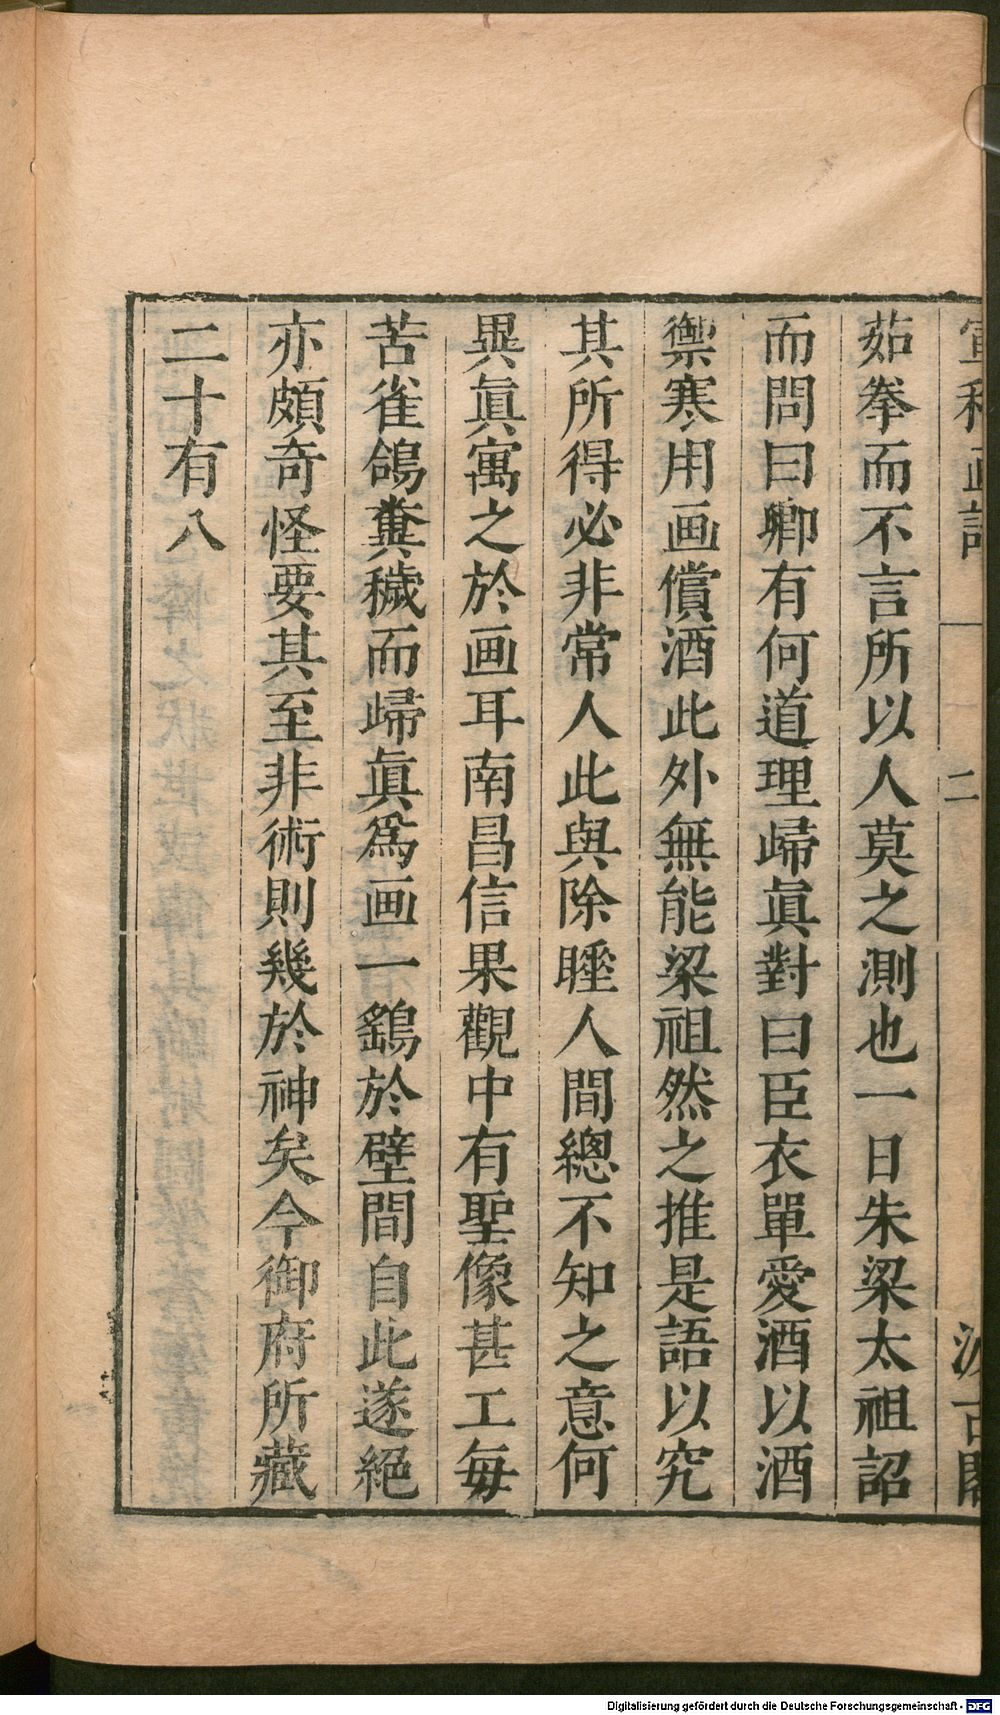 茹拳而不言所以人莫之測也一日朱梁太祖詔
而問曰卿有何道理歸眞對曰臣衣單愛酒以酒
禦寒用画償酒此外無能梁祖然之推是語以究
其所得必非常人此與除睡人間總不知之意何
異眞寓之於画耳南昌信果觀中有聖像甚工每
苦雀鴿糞穢而歸眞爲画一鷂於壁間自此遂絕
亦頗奇怪要其至非術則幾於神矣今御府所藏
二十有八
二
Digitalisierung gefördert durch die Deutsche Forschungsgemeinschaft - DFG